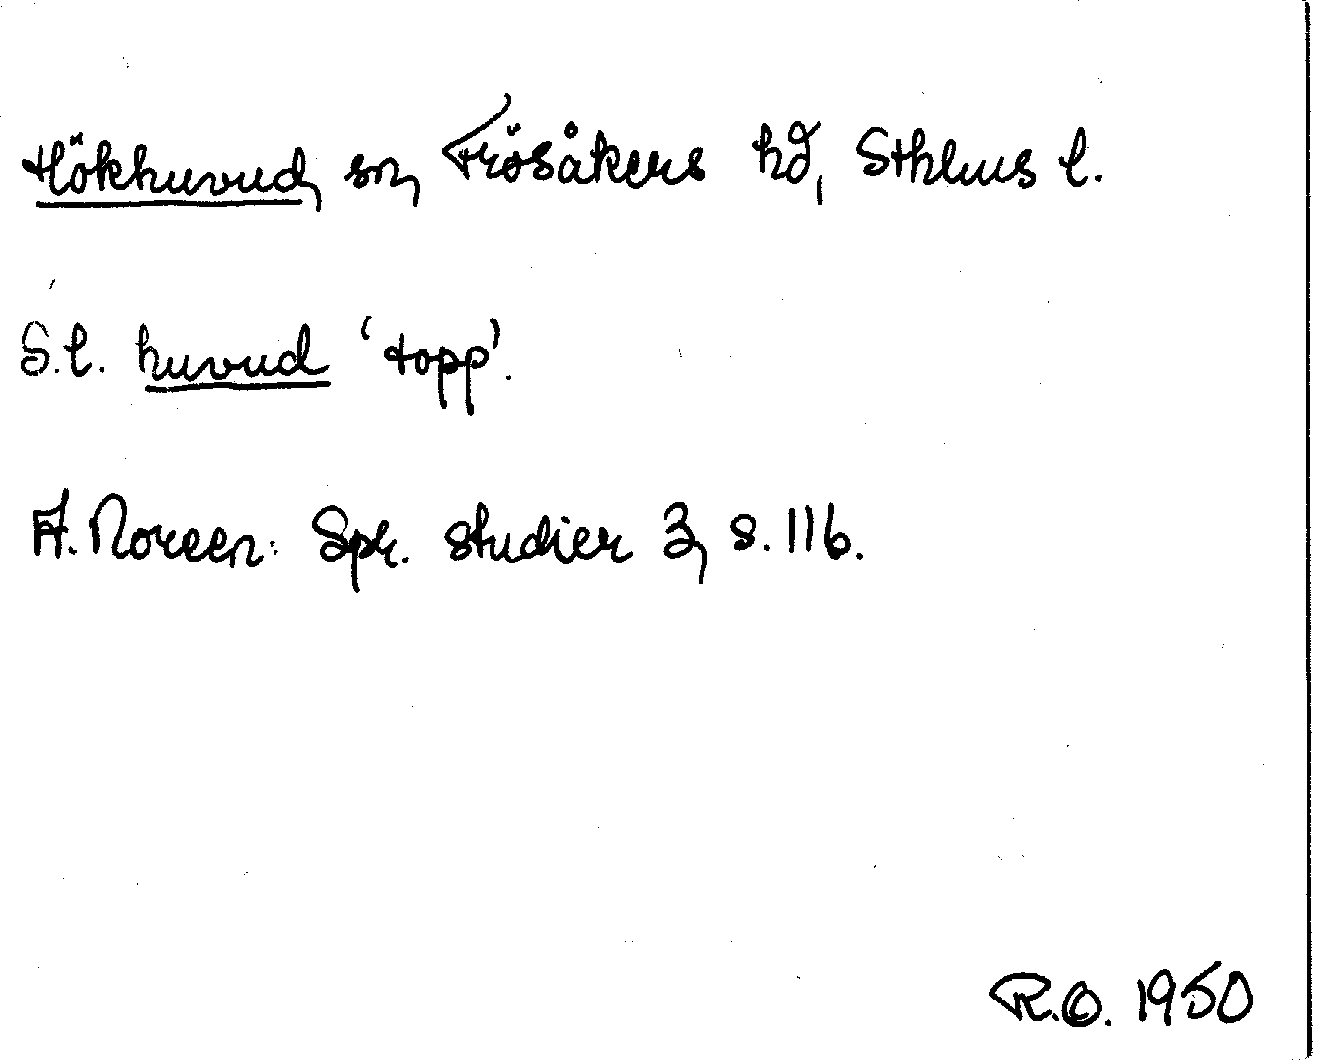 Hökhuvud, sn, Frösåkers hd, Sthlms l.
S.l. huvud 'topp'.
A. Noreen: Spr. studier 3, s. 116.
R.O. 1950